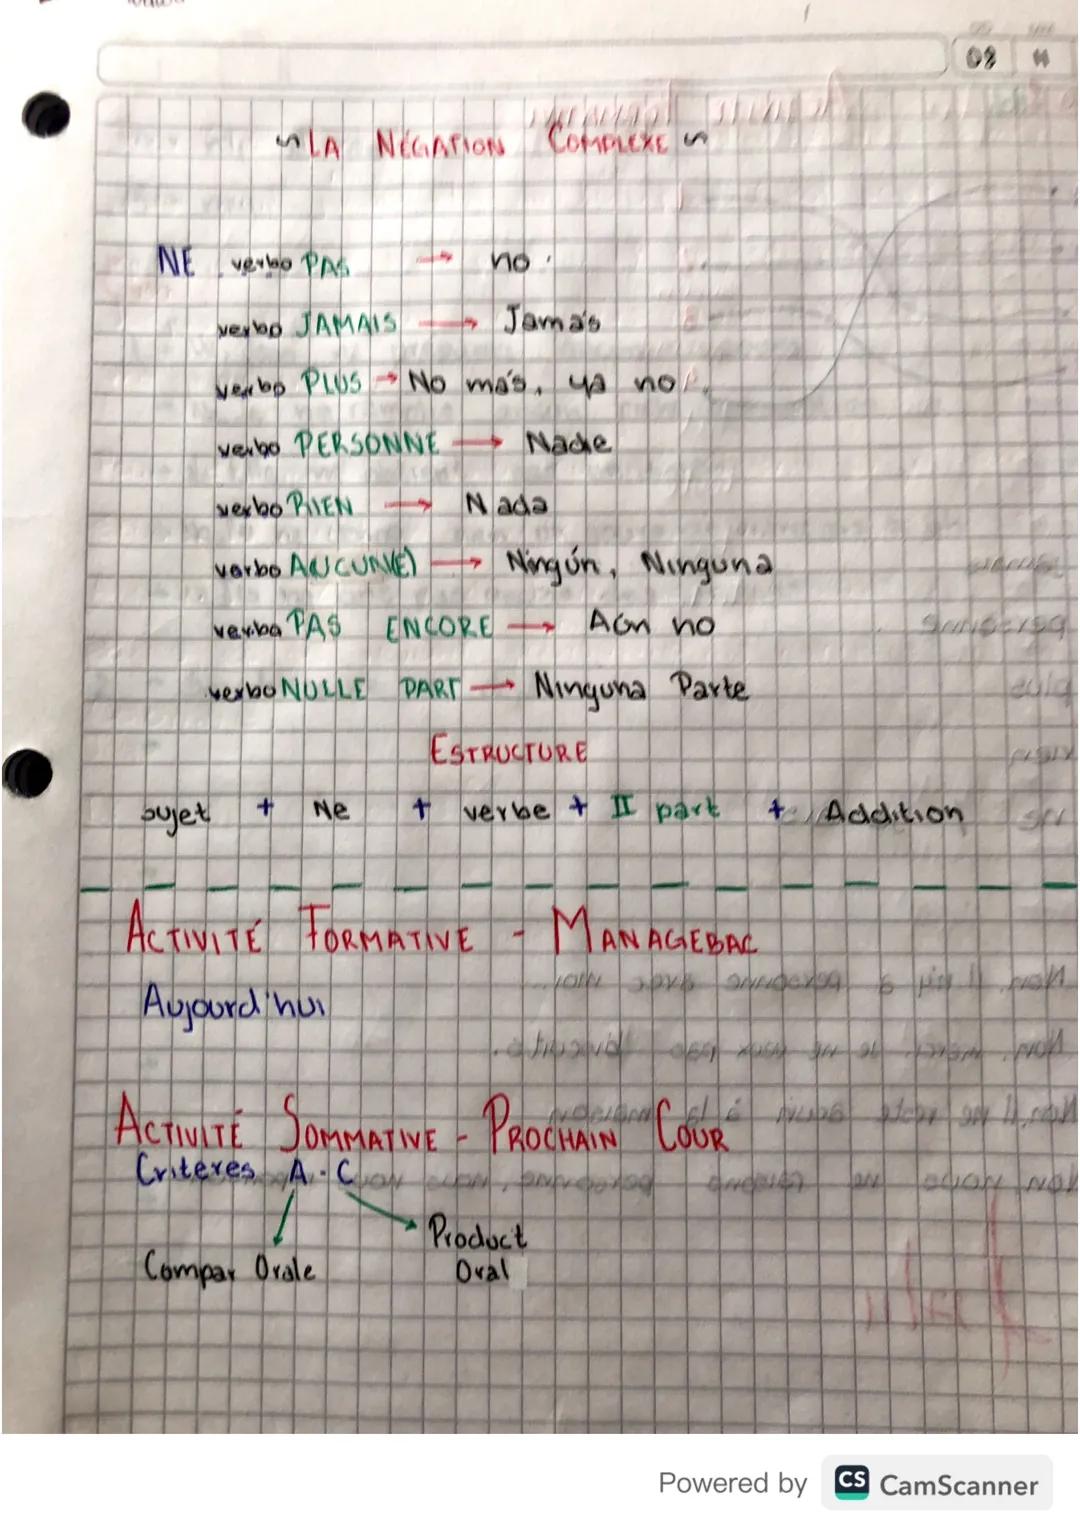 08
~ LA NÉGATION COMPLEXE ~
NE verbo PAS → no.
verbo JAMAIS → Jamás
verbo PLUS → No más, ya no
verbo PERSONNE → Nadie
verbo RIEN → Nada
verbo AUCUN(E) → Ningún, Ninguna
verbo PAS ENCORE → Aún no
verbo NULLE PART → Ninguna Parte
ESTRUCTURE
sujet + Ne + verbe + II part + Addition
ACTIVITÉ FORMATIVE - MANAGEBAC
Aujourd'hui
ACTIVITÉ SOMMATIVE - PROCHAIN COUR
Criteres A - C
Product
Compar Orale
Oral
Powered by CS CamScanner